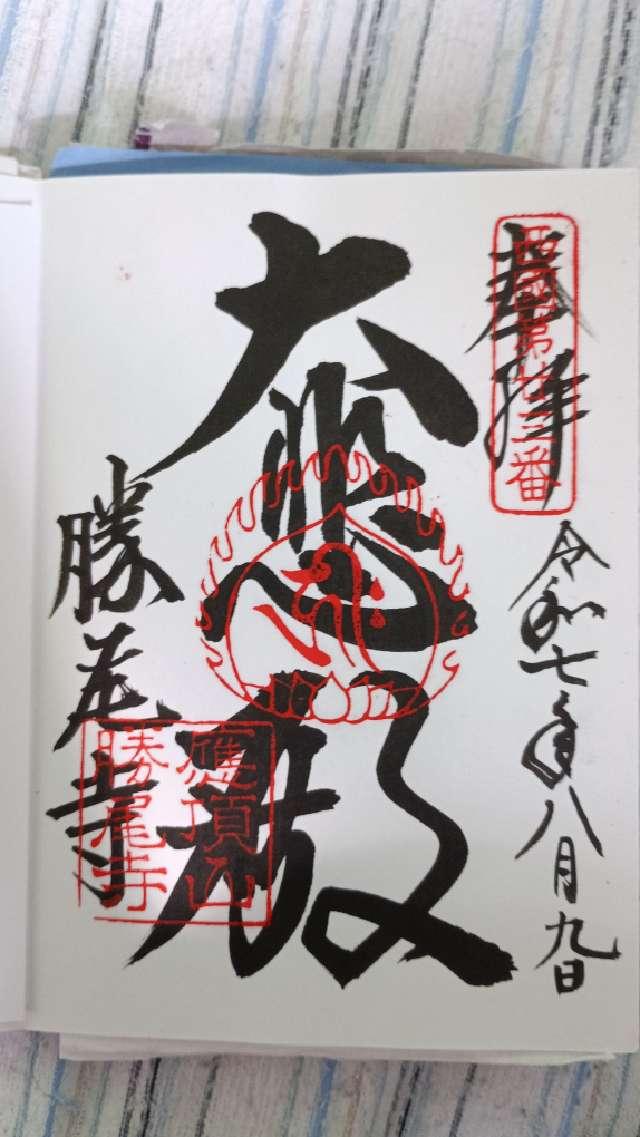 奉拝
西國第廿三番
令和七年八月九日
大悲殿
勝尾寺
應頂山
勝尾寺